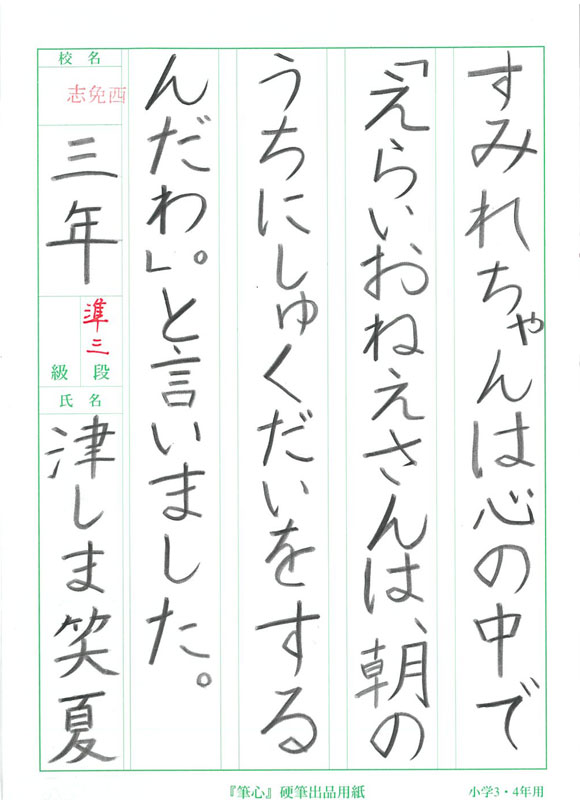 すみれちゃんは心の中で
「えらいおねえさんは、朝の
うちにしゅくだいをする
んだわ」。と言いました。
校名
志免西
三年
準三
級段
氏名
津しま笑夏
『筆心』硬筆出品用紙
小学3・4年用